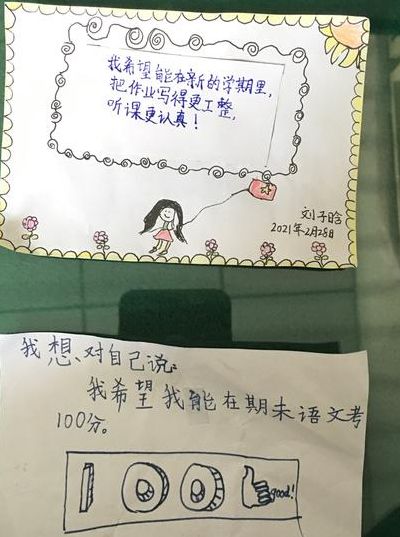 我希望能在新的学期里,
把作业写得更工整,
听课更认真!
刘子晗
2021年2月28日
我想对自己说:
我希望我能在期末语文考
100分。
100 good!